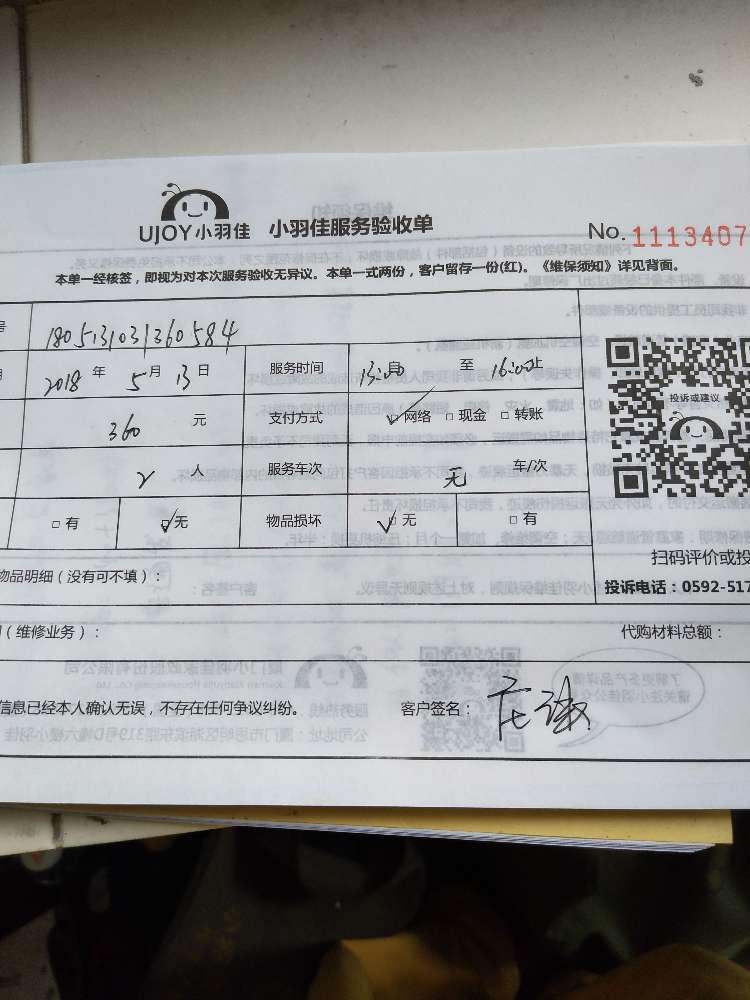 UJOY小羽佳 小羽佳服务验收单 No.1113407
本单一经核签，即视为对本次服务验收无异议。本单一式两份，客户留存一份(红)。《维保须知》详见背面。
号 1805131031360584
期 2018 年 5 月 13 日 服务时间 13:00 至 16:00止
360 元 支付方式 ☑网络 □现金 □转账
投诉或建议
2 人 服务车次 无 车/次
□有 ☑无 物品损坏 ☑无 □有
扫码评价或投
物品明细（没有可不填）：
投诉电话：0592-517
（维修业务）： 代购材料总额：
信息已经本人确认无误，不存在任何争议纠纷。 客户签名：